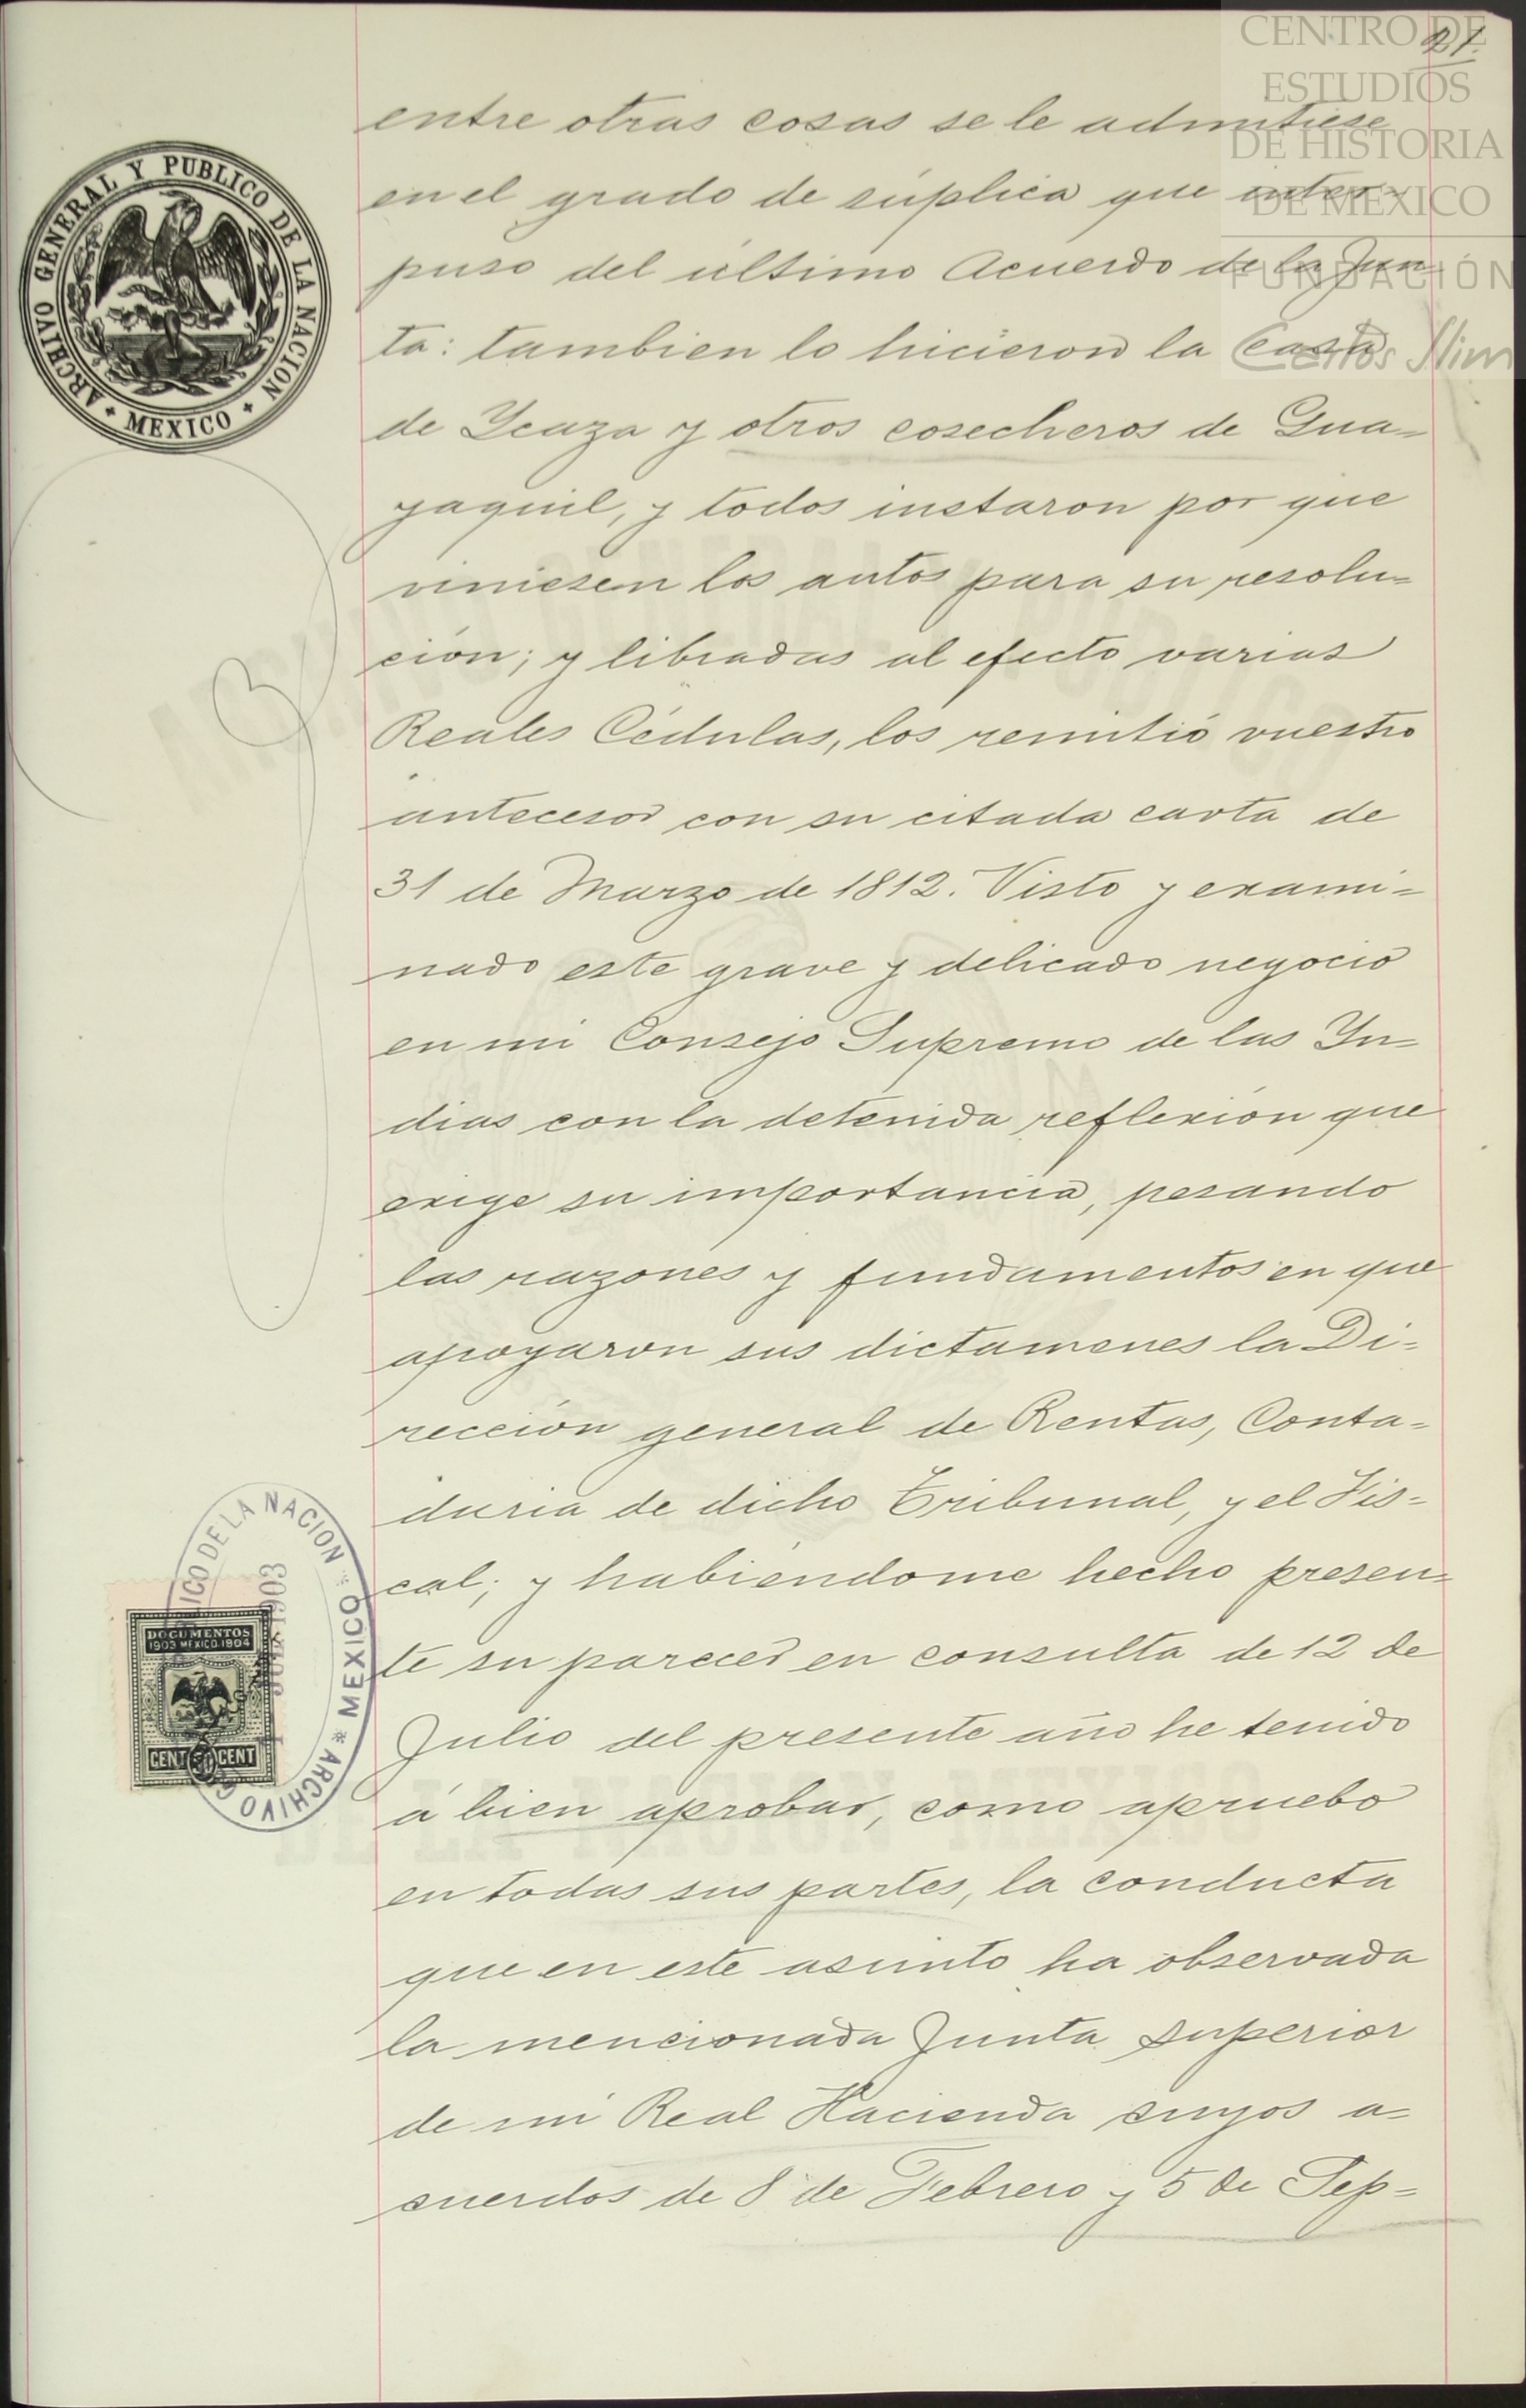 CENTRO DE
ESTUDIOS
DE HISTORIA
DE MÉXICO
FUNDACIÓN
Carlos Slim
21.
ARCHIVO GENERAL Y PUBLICO DE LA NACION
MEXICO
entre otras cosas se le admitiese
en el grado de súplica que inter-
puso del último Acuerdo de la Jun-
ta: tambien lo hicieron la Casa
de Ycaza y otros cosecheros de Gua-
yaquil, y todos instaron por que
viniesen los autos para su resolu-
ción; y libradas al efecto varias
Reales Cédulas, los remitió vuestro
antecesor con su citada carta de
31 de Marzo de 1812. Visto y exami-
nado este grave y delicado negocio
en mi Consejo Supremo de las Yn-
dias con la detenida reflexion que
exige su importancia, pesando
las razones y fundamentos en que
apoyaron sus dictamenes la Di-
reccion general de Rentas, Conta-
duria de dicho Tribunal, y el Fis-
cal; y habiéndome hecho presen-
te su parecer en consulta de 12 de
Julio del presente año he tenido
á bien aprobar, como apruebo
en todas sus partes, la conducta
que en este asunto ha observada
la mencionada Junta superior
de mi Real Hacienda cuyos a-
cuerdos de 8 de Febrero y 5 de Sep-
ICO DE LA NACION * MEXICO * ARCHIVO G
1903
DOCUMENTOS
1903 MEXICO 1904
CENT 50 CENT